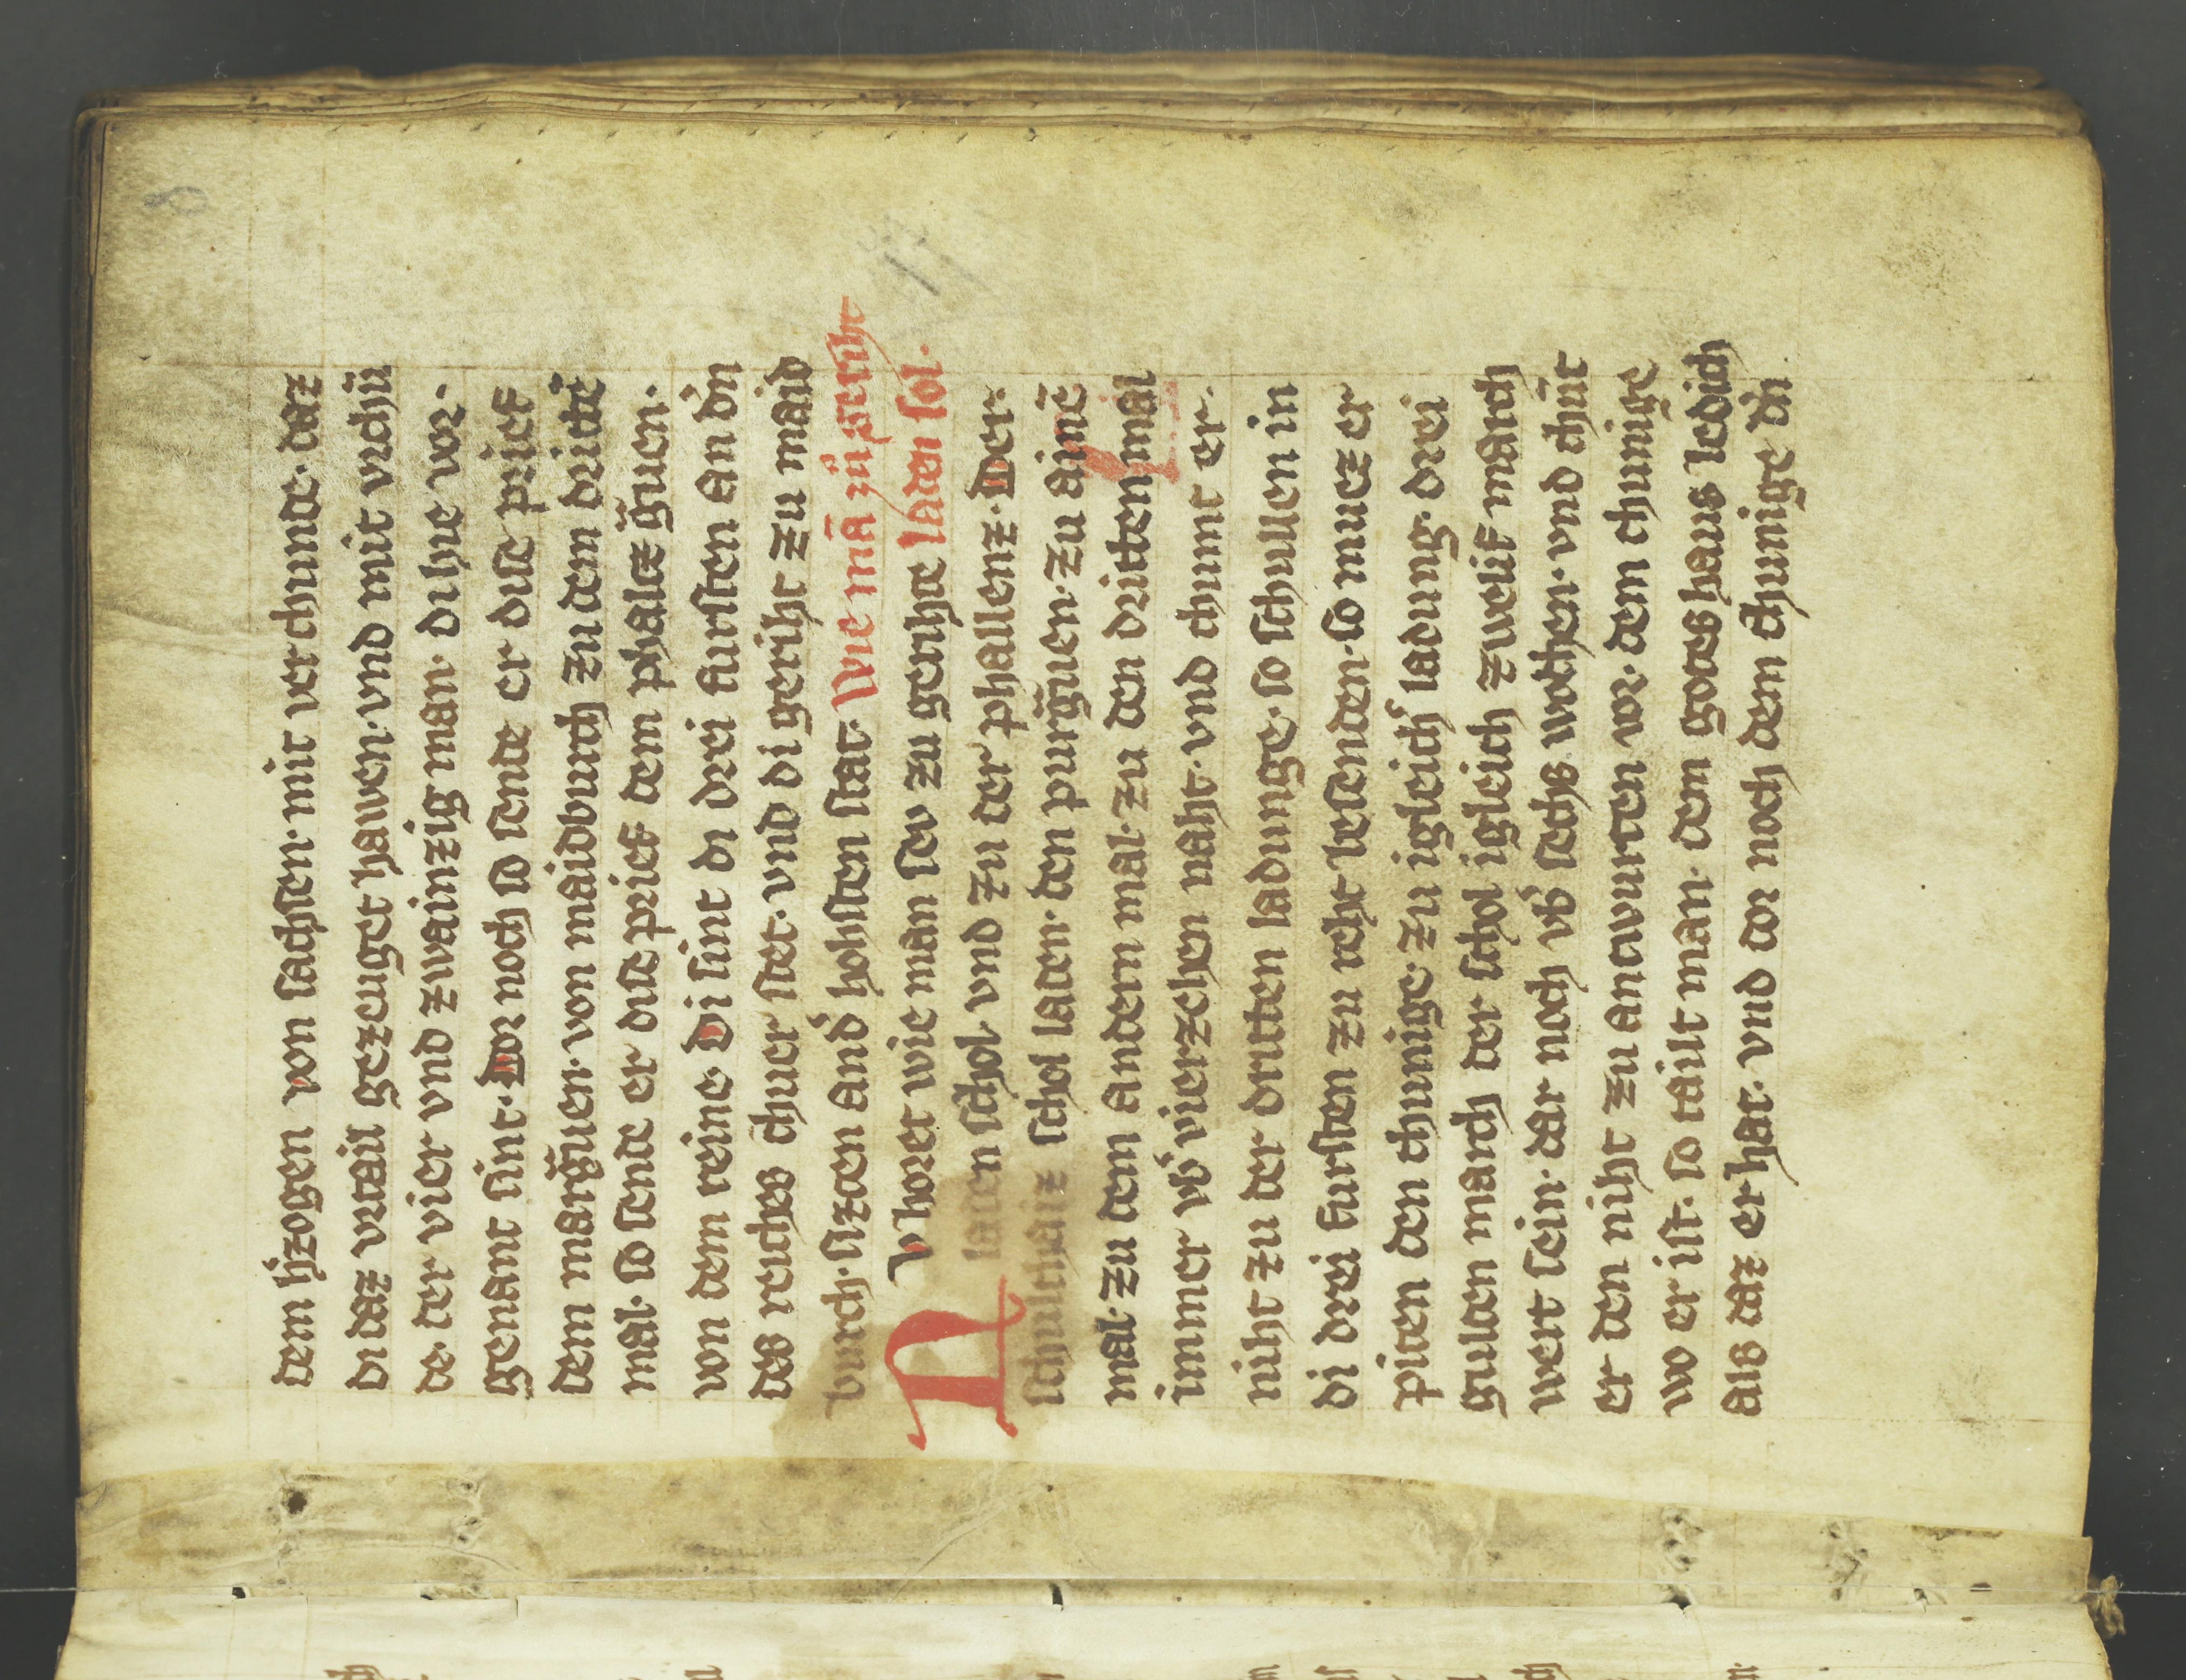 dem h̓zogen von sachsen· mit verchunde· daz
di daz vrtail gezeuget hawen· vnd mit vrchū
de· der vier vnd zwainzig man· di hie vor·
genant sint· Dor noch so sende er dise prief
dem marg̃uen· von maidburch zu dem drittē
mal· so sende er dise prief dem phalcz g̃uen·
von dem reine· Di sint di drei fursten an den
des reiches chuer stet· vnd di geriht zu maid
burch· sizcen and̓ hohsten stat· Wie mā zū geriht
NV horet wie man sev zu gerihte laden sol·
laden schol vnd zu der phallenz· Der·
schulthaiz schol laden· den purg̃uen· zu ainē
mal· zu dem andern mal· zu den dritten mal
immer vb̓ vierzehen naht· vnd chumt er·
niht zu der dritten ladunge· so schullen in
di drei fursten zu reht besenden· so muez er
piten den chunige· zu igleich̓ ladung· drei
gulden march der schol igleich zwelif march
wert sein· dar noch vb̓ sechs wochen· vnd chūt
er den niht zu antwurten vor· dem chunige
wo er ist· so tailt man· dem gotes haus ledich
als daz er hat· vnd dor noch dem chunige din